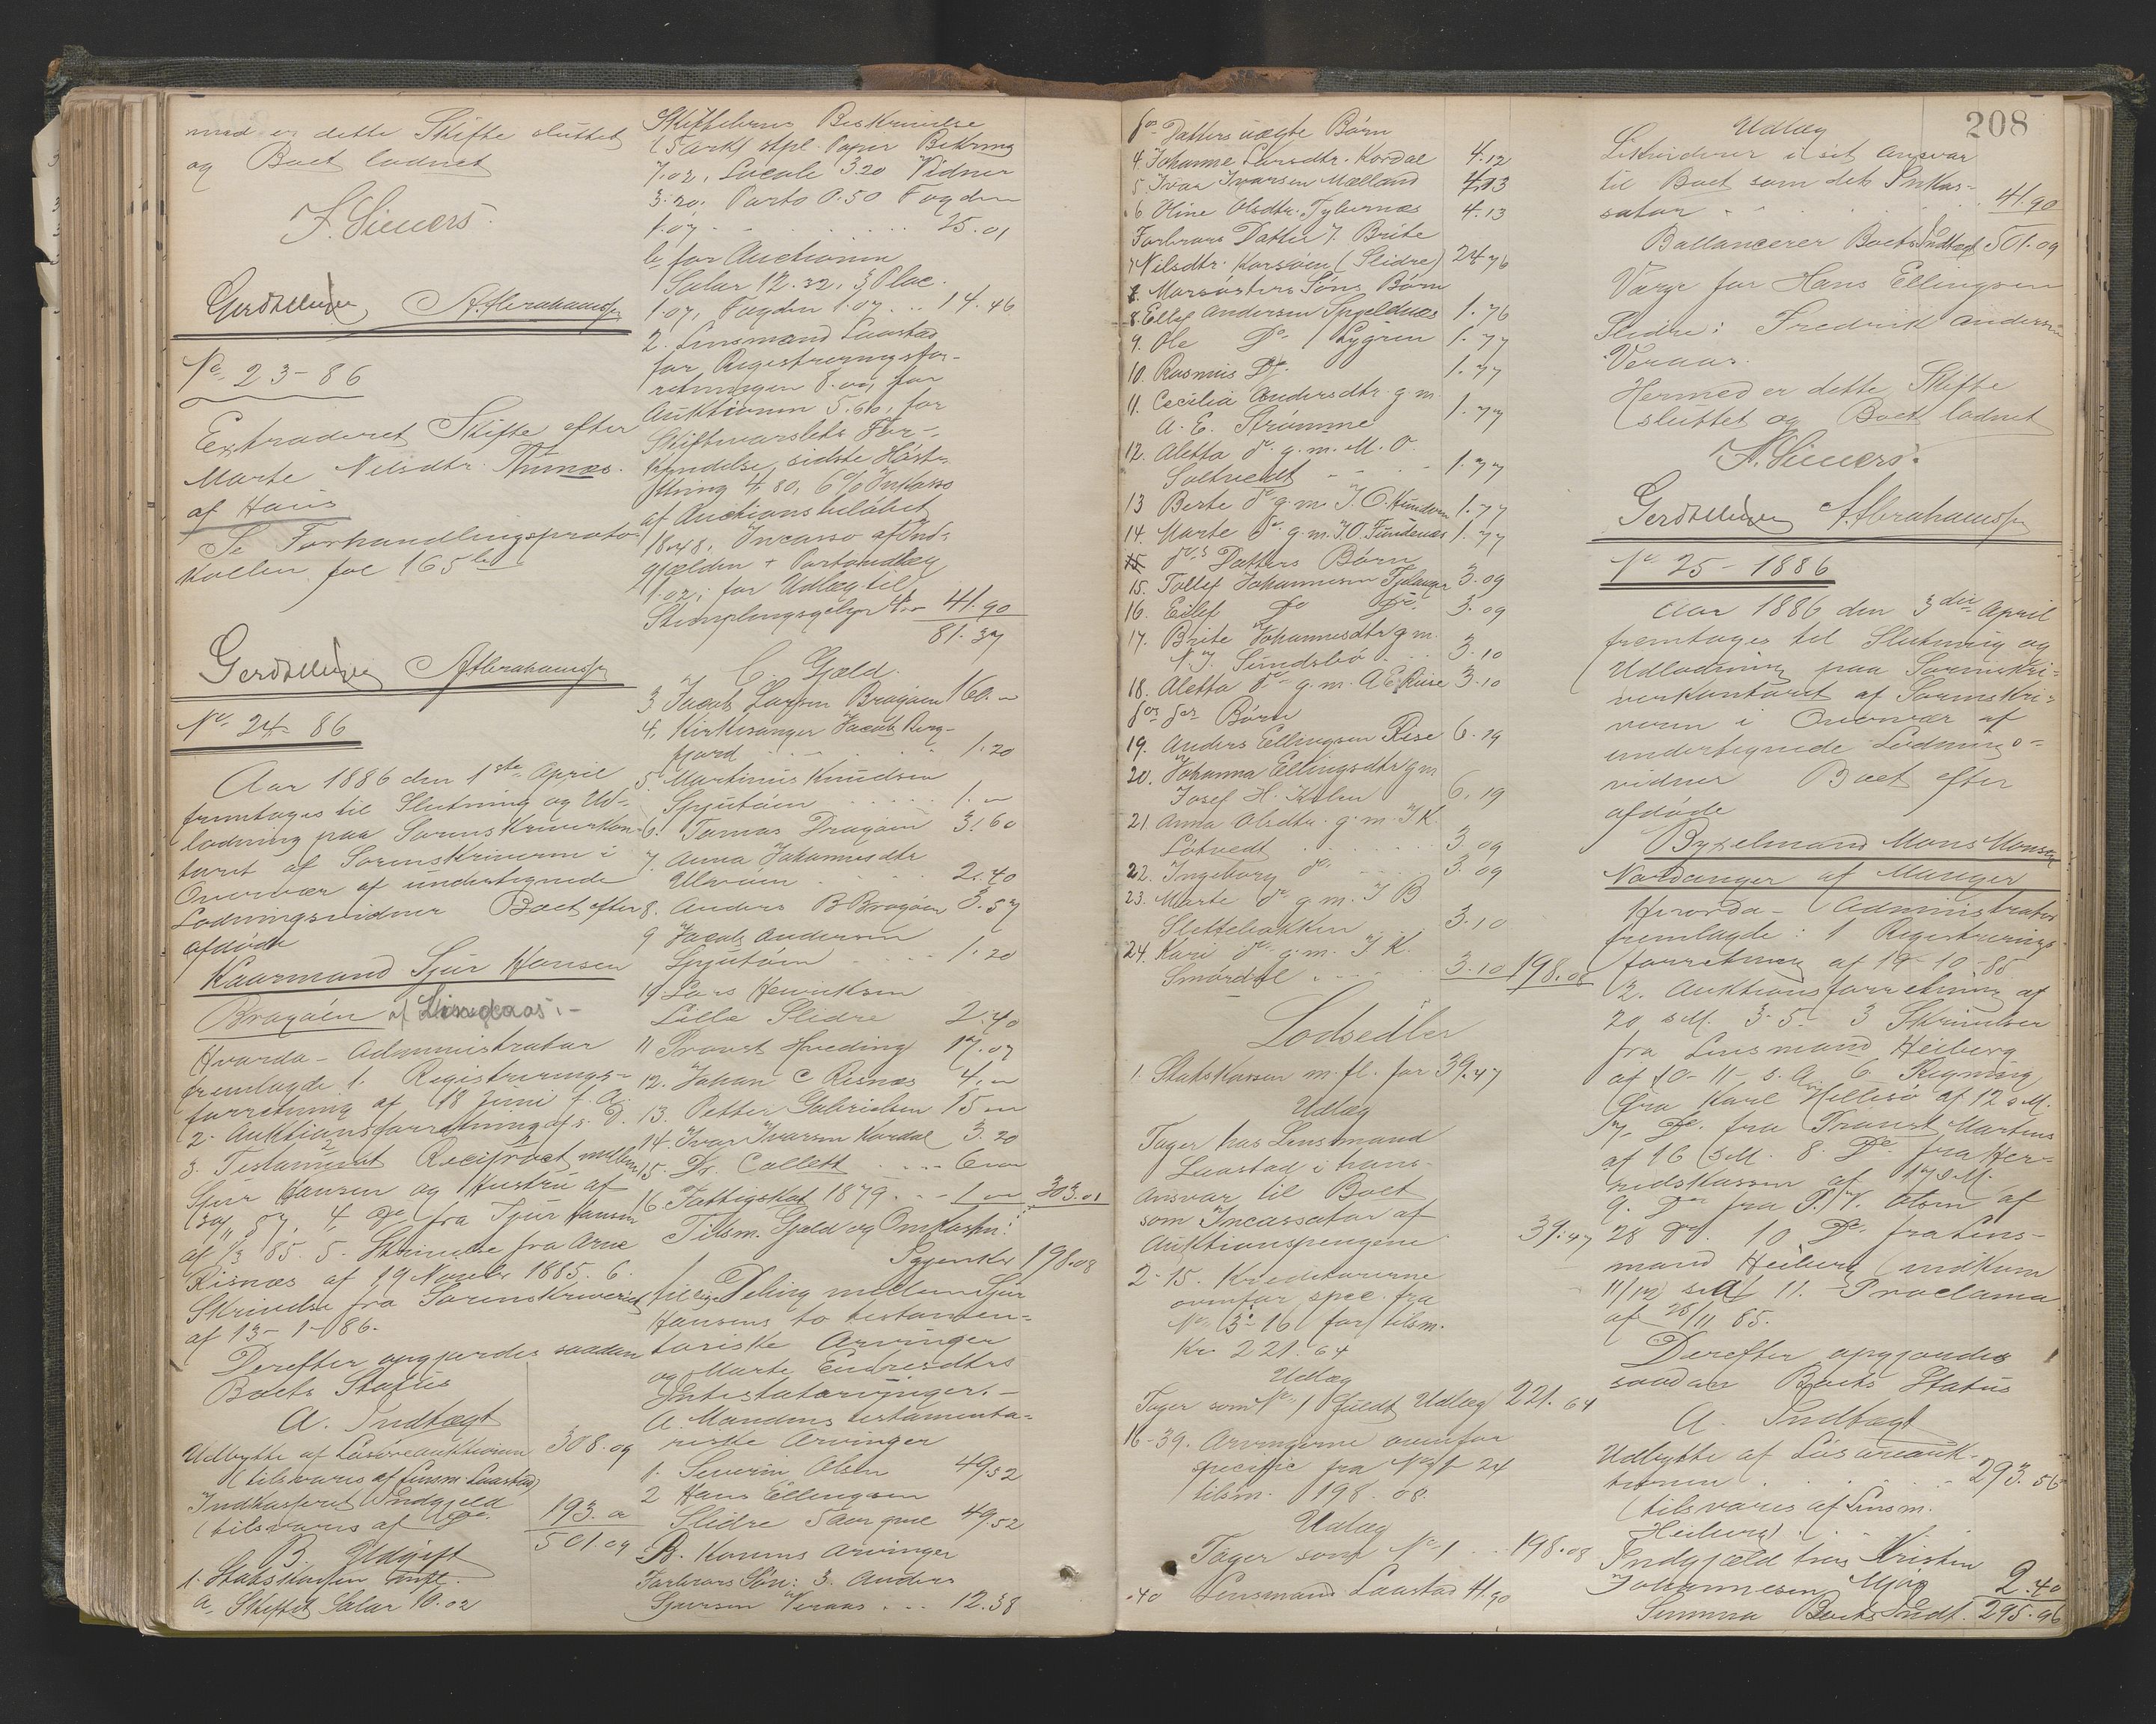 med er dette Skifte sluttet
og Boet lodnet
F. Sievers.
Gerdt Meyer A. Abrahamsen
No 23-86
Extraderet Skifte efter
Marte Nilsdtr. Tunæs.
af Haus
Se Forhandlingsproto-
kollen fol 165
Gerdt Meyer A. Abrahamsen
No 24-86
Aar 1886 den 1ste April
fremtoges til Slutning og Ud-
lodning paa Sorenskriverkon-
toret af Sorenskriveren i
Overvær af undertegnede
Lodningsvidner Boet efter
afdøde
Kaarmand Sjur Hansen
Bragøen af Lindaas.-
Hvorda - Administrator
fremlagde 1. Registrerings-
forretning af 18 Juni f. A.
2. Auktionsforretning af s. D.
3. Testament Reciprokt mellem
Sjur Hansen og Hustru af
4. Do fra Sjur Hansen
af 1/3 85. 5. Skrivelse fra Arne
Risnæs af 19 Novbr 1885. 6.
Skrivelse fra Sorenskriveriet
af 13-1-86.
Derefter opgjordes saadan
Boets Status
A. Indtægt
Udbytte af Løsøreauktionen 308.09
(tilsvares af Lensm. Laastad)
Indkasseret Indgjeld
(tilsvares af Do 193.00
501.09
B. Udgift
1. Statskassen mfl.
a. Skiftet Salar 10.02
Skiftebrevs Beskrivelse
(5 Ark) stpl. Papir Bekring
7.02, Locale 3.20 Vidner
3.20. Porto 0.50 Fogden
1.07 - 25.01
b. for Auctionen
Salar 12.32, 3 Plac.
1.07, Fogden 1.07 ... 14.46
2. Lensmand Laastad
for Registreringsfor-
retningen 8.00, for
Auktionen 5.60, for
Skiftevarslets For-
kyndelse, sidste Høste
4.80, 6% Inkasso
af Auctionsbeløbet
18.48, Incasso af Ind-
gjælden + Portoudlæg
1.02, for Udlæg til
Stemplingsgebyr 41.90
81.37
C. Gjæld.
3 Jacob Larsen Bragøen 160.00
4. Kirkesanger Jacob Berg-
fjord 1.20
5. Martinus Knudsen
Spjutøen 1.00
6. Tomas Dragøen 3.60
7. Anna Johannesdtr
Ulvøen 2.40
8. Anders B Bragøen 3.57
9 Jacob Andersen
Spjutøen 1.20
10. Lars Henriksen
Lille Slidre 2.40
11 Provst Hveding 17.07
12. Johan C Risnæs 4.00
13. Petter Gabrielsen 15.00
14. Ivar Ivarsen Kordal 3.20
15. Dr. Collett 6.00
16 Fattigskat 1879 1.00 303.01
Tilsm. Gjæld og Omkostn:
Igjen Kr 198.08
til lige Deling mellem Sjur
Hansens to testamen-
tariske Arvinger
og Marte Endresdtrs
Intestatarvinger.-
A. Mandens testamenta-
riske Arvinger
1. Severin Olsen 49.52
2 Hans Ellingsen
Slidre 5 aar gml 49.52
B. Konens Arvinger
Farbrors Søn: 3. Anders
Sjursen Veraas ... 12.38
208
do Datters uægte Børn
4. Johanne Larsdtr. Kordal 4.12
5 Ivar Ivarsen Mælland 4.13
6. Oline Olsdtr. Fyllingsnæs 4.13
Farbrors Datter 7. Brite
Nilsdtr. Korsøen (Slidre) 24.76
Morsøsters Søns Børn
8. Ellef Andersen Spjeldnæs 1.76
9. Ole Do Lygren 1.77
10. Rasmus Do. 1.77
11. Cecilia Andersdtr. g.m.
A. E. Strømme 1.77
12. Aletta do. g.m. M. O.
Soltvedt 1.77
13 Berte do g.m. J. O. Hundven 1.77
14. Marte do. g.m. J. O. Fundenæs 1.77
do.s Datters Børn
15. Tollef Johannesen Fjelanger 3.09
16. Eilef Do Do 3.09
17. Brite Johannesdtr g.m.
Sundsbø 3.10
18. Aletta do g.m. A E Riise 3.10
dos dos Børn
19. Anders Ellingsen Rise 6.19
20. Johanna Ellingsdtr g.m
Josef H. Kolen 6.19
21 Anna Olsdtr. g.m. J K.
Løtvedt 3.09
22. Ingeborg do 3.09
23. Marte do g.m. J B
Slettebakken 3.10
24. Kari do g.m. J K.
Smørdal 3.10 198.08
Lodsedler
1. Statskassen m. fl. for 39.47
Udlæg
Tager hos Lensmand
Laastad i hans
Ansvar til Boet
som Incassator af
Auktionspengene 39.47
2-15. Kreditorerne
ovenfor spec. fra
No 3-16 for tilsm.
Kr. 221.64
Udlæg
Tager som No 1 fuldt Udlæg 221.64
16-39. Arvingerne ovenfor
specific fra No 1-24
tilsm. 198.08.
Udlæg
Tager som No 1 198.08
40 Lensmand Laastad 41.90
Udlæg
Likviderer i sit Ansvar
til Boet som dets Inkas-
sator 41.90
Ballancerer Boets Indtægt 501.09
Værge for Hans Ellingsen
Slidre: Fredrik Andersen
Veraas.
Hermed er dette Skifte
sluttet og Boet lodnet
F. Sievers.
Gerdt Meyer A. Abrahamsen
No 25-1886
Aar 1886 den 3die April
fremtoges til Slutning og
Udlodning paa Sorenskri-
verkontoret af Sorenskri-
veren i Overvær af
undertegnede Lodnings-
vidner Boet efter
afdøde
Bygselmand Mons Monsen
Nordanger af Manger
Hvorda - Administrator
fremlagde: 1 Registrerings
forretning af 19-10-85
2. Auktionsforretning af
20 s.M. 3-5- 3 Skrivelser
fra Lensmand Heiberg
af 10-11-s.A. 6. Regning
fra Karl Hellesø af 12 s.M.
7. Do. fra Provst Martens
af 16 s.M. 8. Do fra Her-
redskassen af 17 s.M.
9. Do fra P. M. Olsen af
28 do. 10 Do. fra Lens-
mand Heiberg (indkom
11/12) s.A 11. Proclama
af 28/11 85.
Derefter opgjordes
saadan Boets Status
A. Indtægt
Udbytte af Løsøreauk-
tionen 293.56
(tilsvares af Lensm.
Heiberg)
Indgjæld hos Kristen
Johannesen Mjøs 2.40
Summa Boets Indt. 295.96